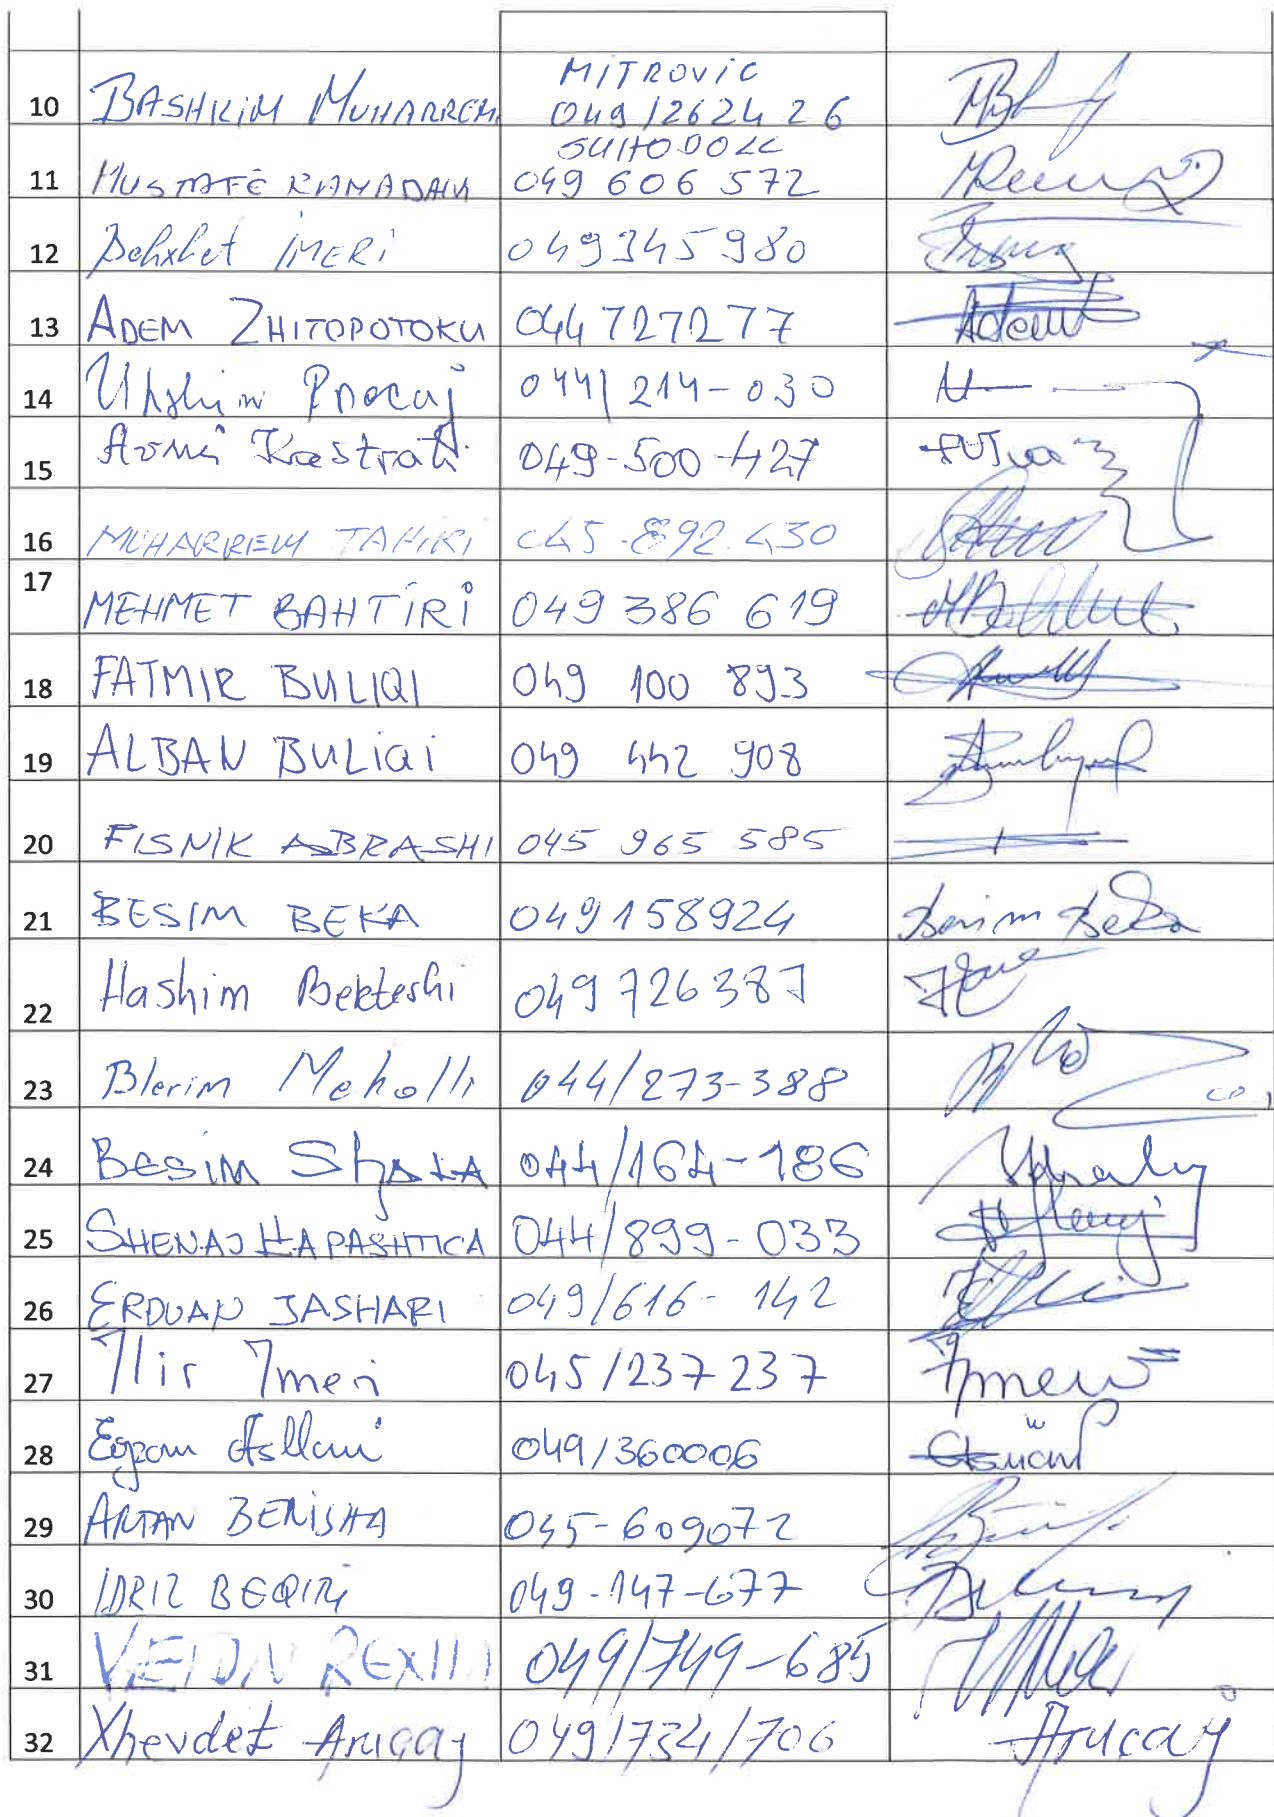 MITROVIC
10 BASHKIM MUHARREM 049/262426
SUHODOLL
11 MUSTAFË RAMADANI 049 606 572
12 Behxhet IMERI 049345980
13 ADEM ZHITOPOTOKU 044 727277 Adem
14 044/214-030
15 Azmi Kastrati 049-500-427
16 MUHARREM TAHIRI 045-892 430
17 MEHMET BAHTIRI 049 386 619
18 FATMIR BULIQI 049 100 893
19 ALBAN BULIQI 049 442 908
20 FISNIK ABRASHI 045 965 585
21 BESIM BEKA 049158924 Besim Beka
22 Hashim Bekteshi 049 726387
23 Blerim Meholli 044/273-388
24 BESIM ShALA 044/164-186
25 SHENAJ HAPASHTICA 044/899-033
26 ERDUAN JASHARI 049/616-142
27 Ilir Imeri 045/237237 Imeri
28 Egzon Asllani 049/360006
29 ARTAN BERISHA 045-609072
30 IDRIZ BEQIRI 049-147-677
31 REXH 049/749-685
32 Xhevdet Arucaj 049/734/706 Arucaj